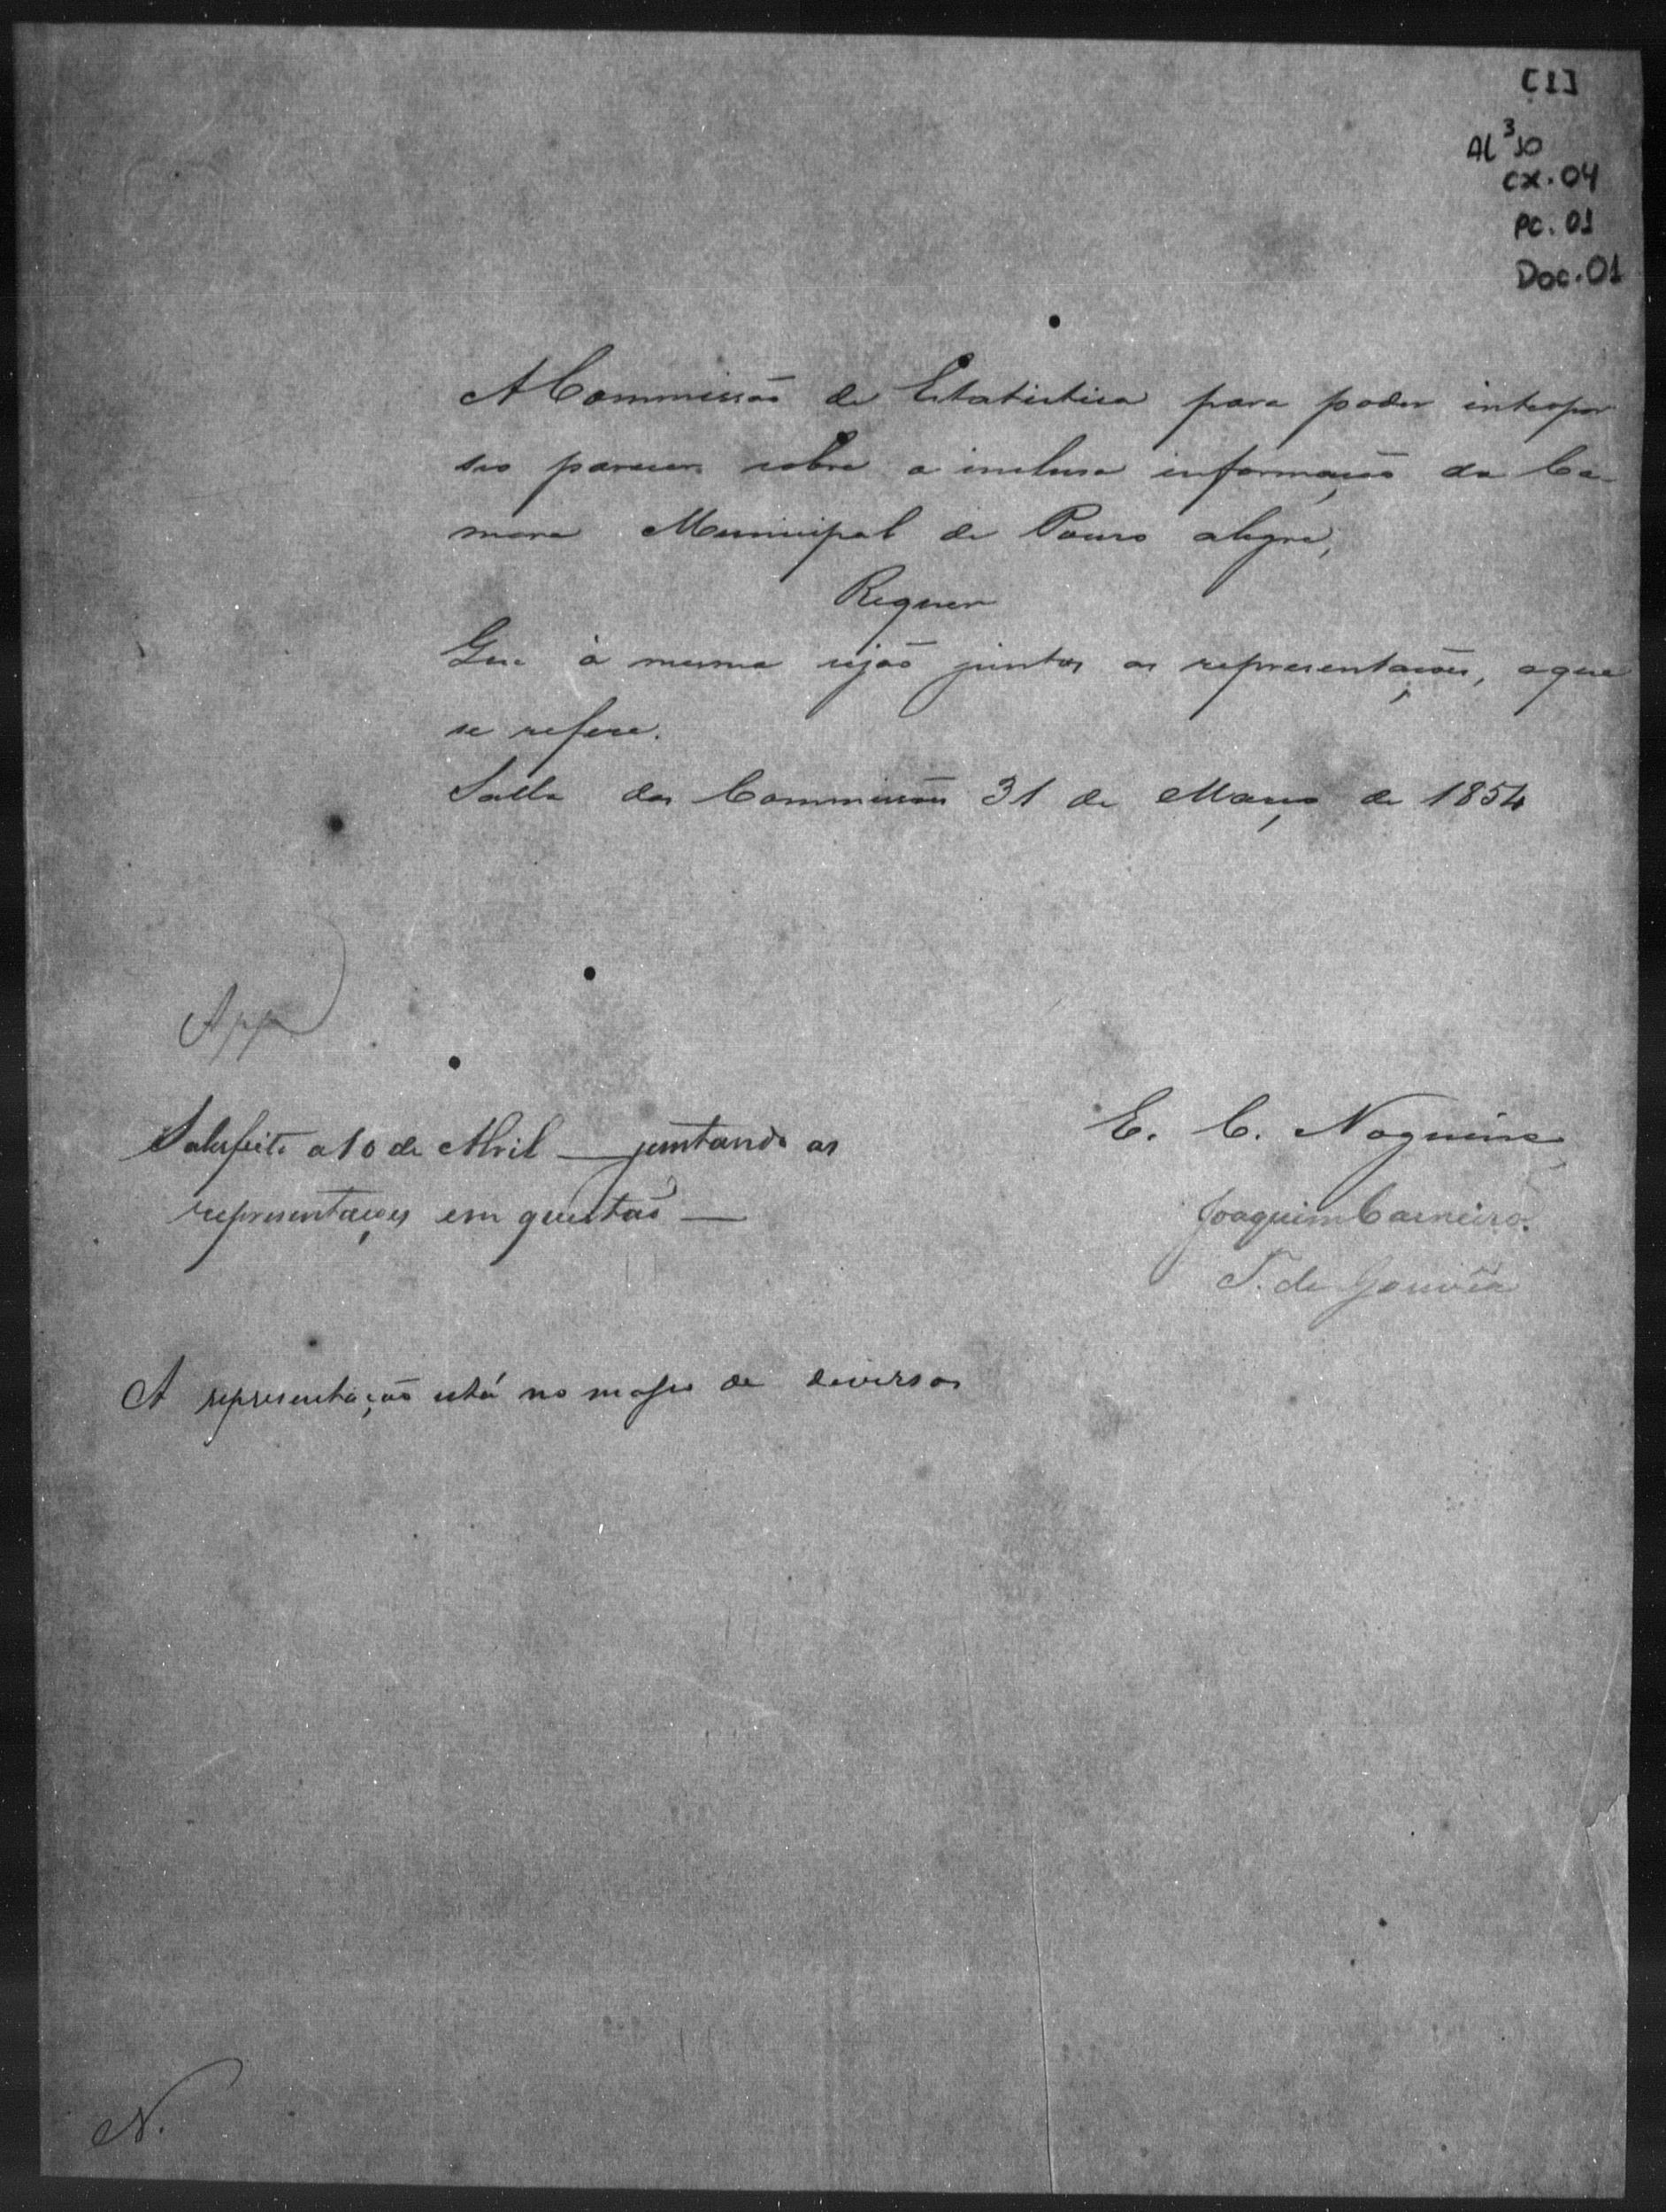 [1]
AL³ 10
CX. 04
PC. 01
Doc. 01
A Commissão de Estatistica para poder interpor
seo parecer sobre a inclusa informação da Ca-
mara Municipal de Pouso alegre,
Requer
Que á mesma sejão juntas as representações, a que
se refere.
Salla das Commissões 31 de Março de 1854
App
Satisfeito a 10 de Abril — juntando as
representações em questão —
E. C. Nogueira
Joaquim Carneiro.
T. de Gouvêa
A representação está no masso de diversos
N.